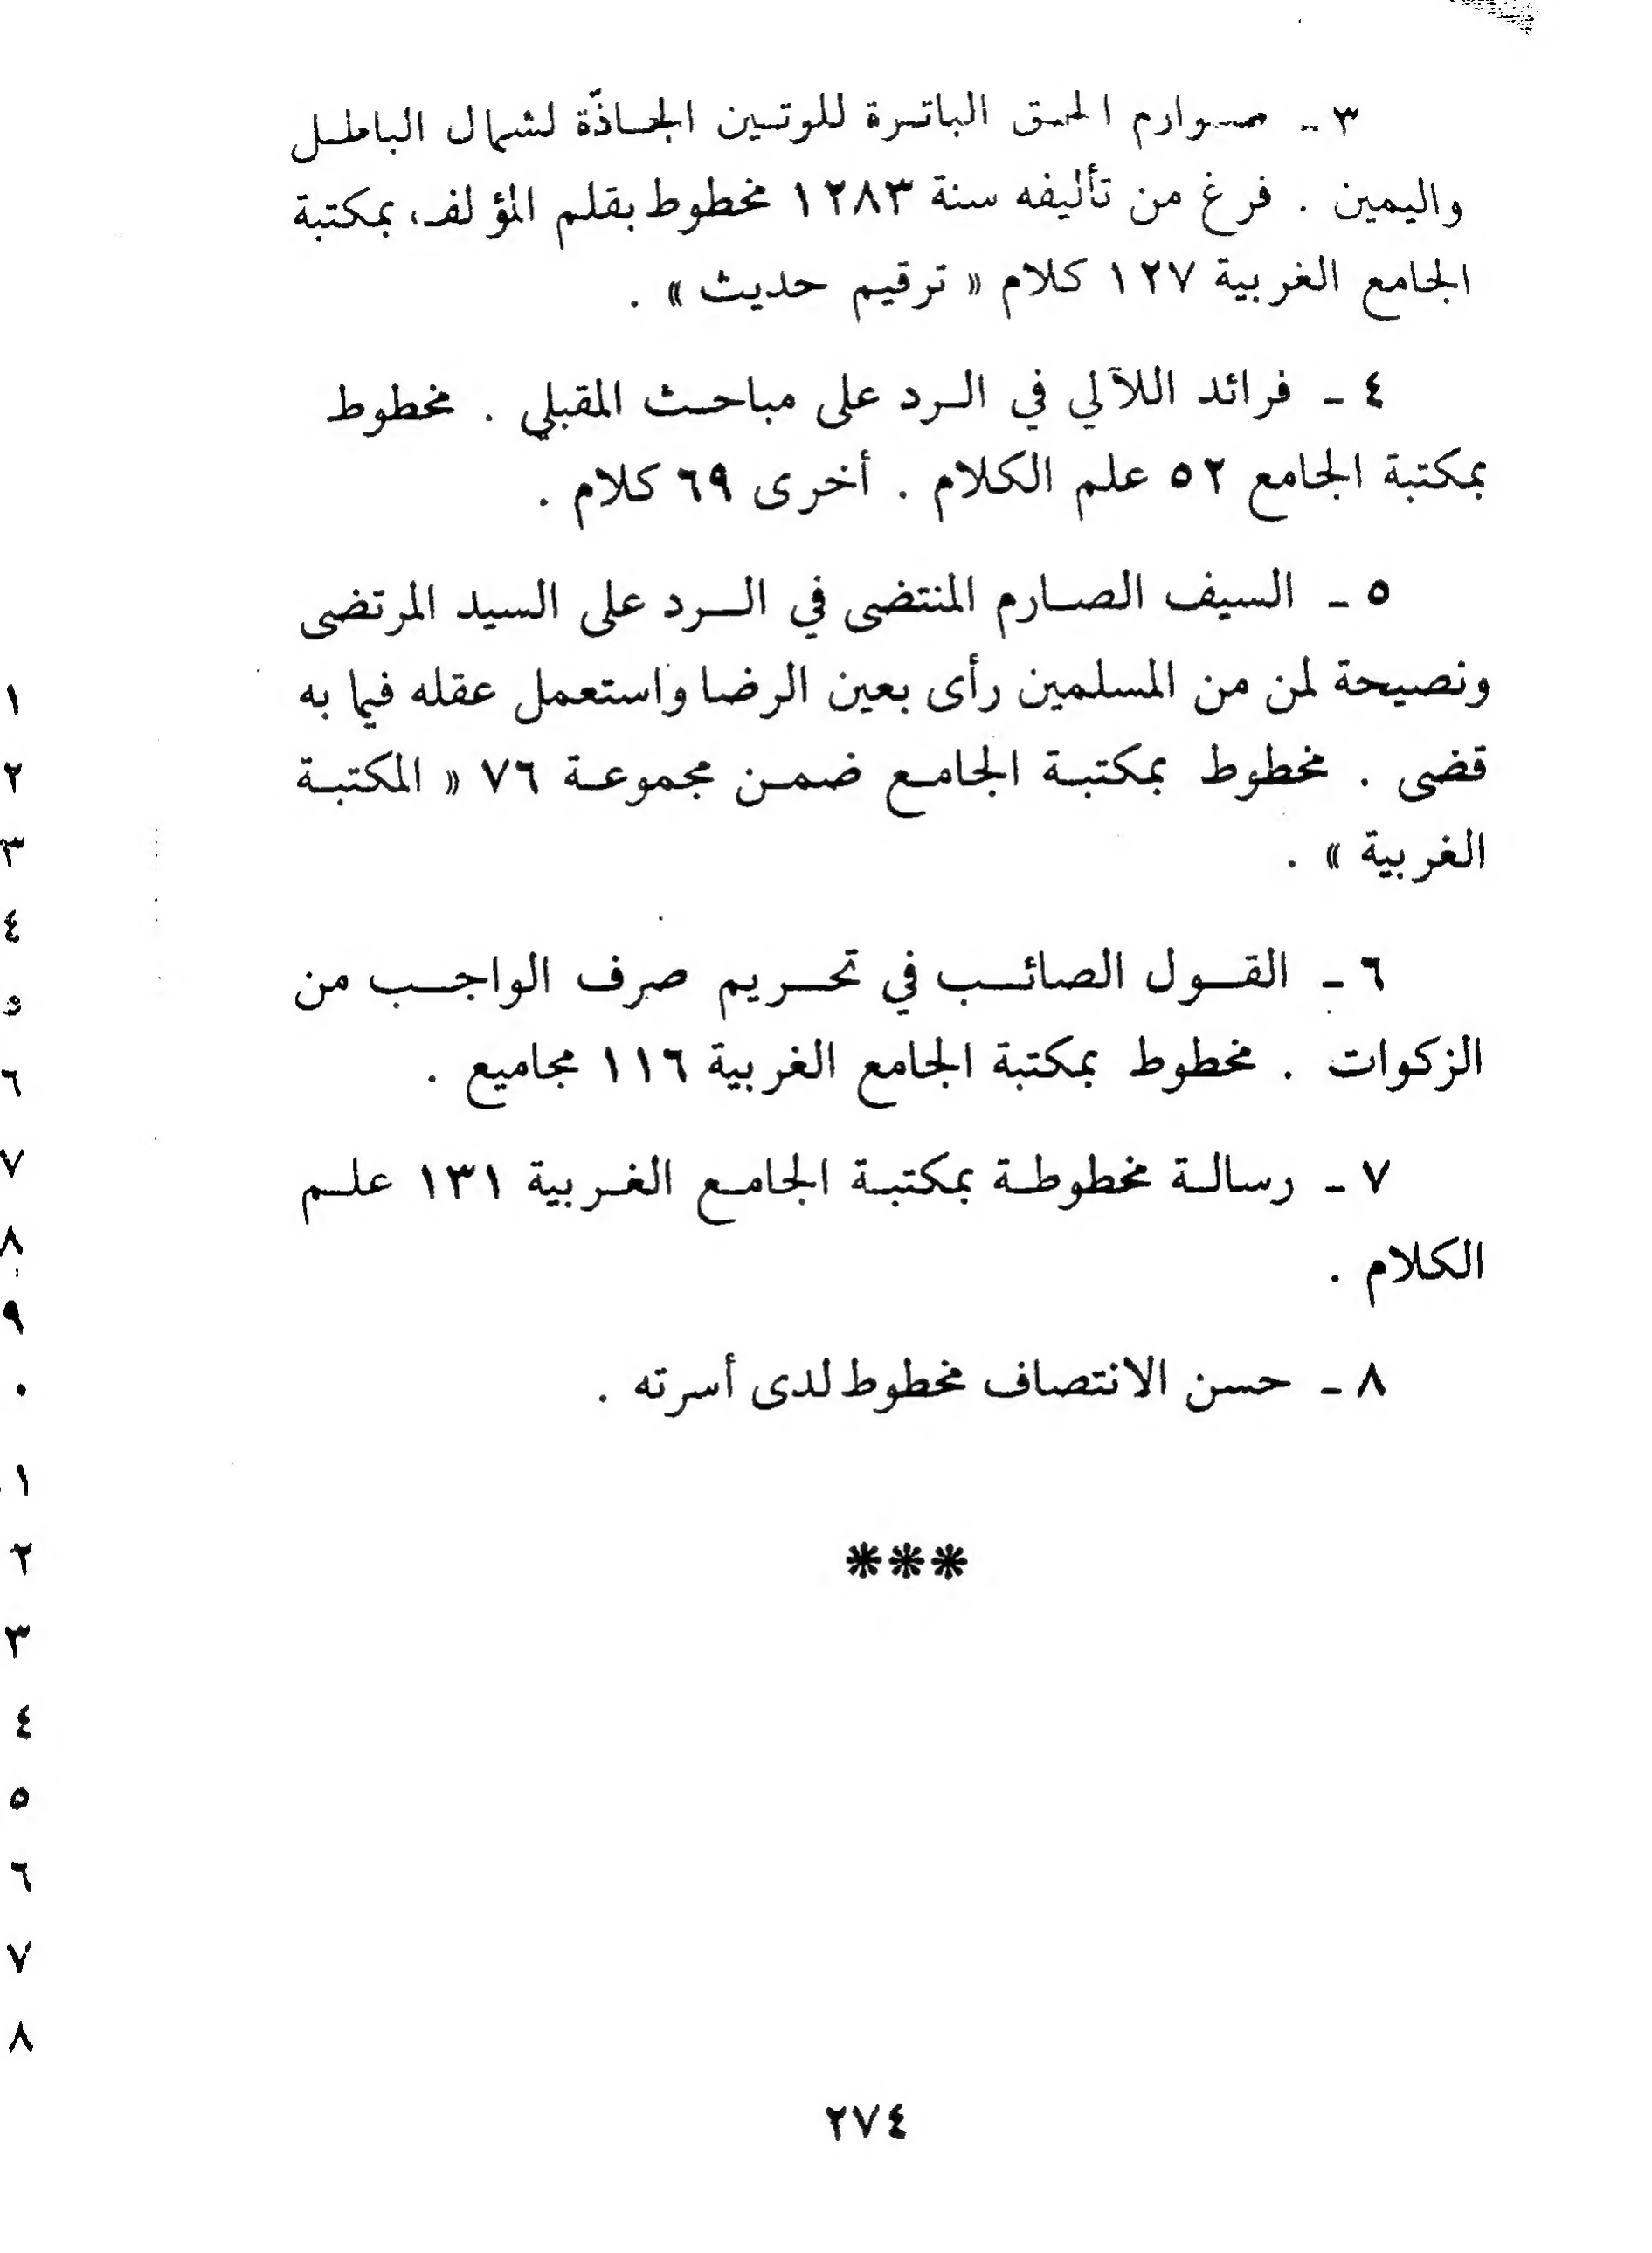 ٣ - صوارم الحق الباترة للوتين الجاذّة لشمال الباطل
واليمين . فرغ من تأليفه سنة ١٢٨٣ مخطوط بقلم المؤلف، بمكتبة
الجامع الغربية ١٢٧ كلام « ترقيم حديث » .
٤ - فرائد اللآلي في الرد على مباحث المقبلي . مخطوط
بمكتبة الجامع ٥٢ علم الكلام . أخرى ٦٩ كلام .
٥ - السيف الصارم المنتضى في الرد على السيد المرتضى
ونصيحة لمن من المسلمين رأى بعين الرضا واستعمل عقله فيما به
قضى . مخطوط بمكتبة الجامع ضمن مجموعة ٧٦ « المكتبة
الغربية » .
٦ - القول الصائب في تحريم صرف الواجب من
الزكوات . مخطوط بمكتبة الجامع الغربية ١١٦ مجاميع .
٧ - رسالة مخطوطة بمكتبة الجامع الغربية ١٣١ علم
الكلام .
٨ - حسن الانتصاف مخطوط لدى أسرته .
***
٢٧٤
١
٢
٣
٤
٥
٦
٧
٨
٩
٠
١
٢
٣
٤
٥
٦
٧
٨